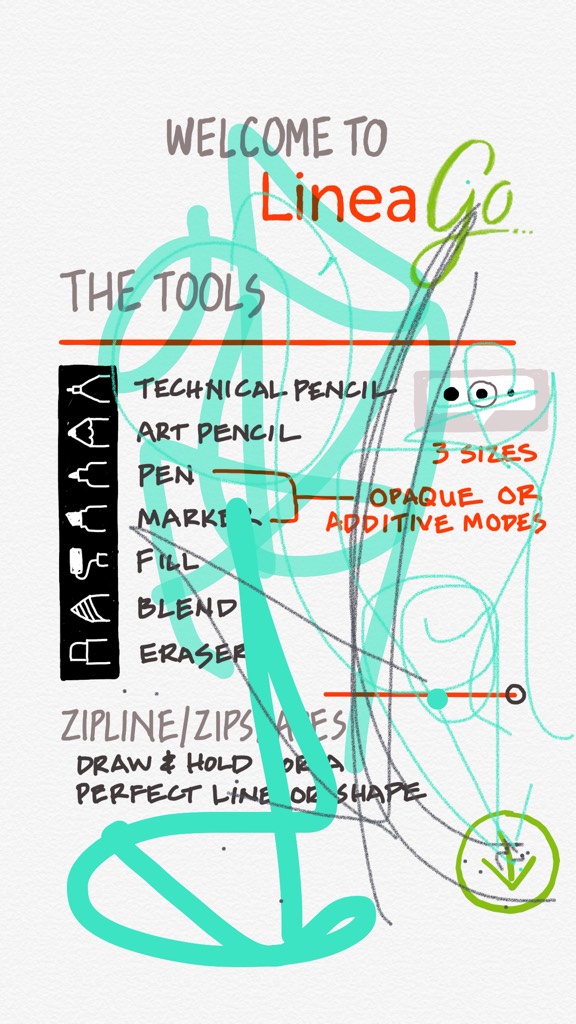 WELCOME TO
Linea Go...
THE TOOLS
TECHNICAL PENCIL
ART PENCIL
PEN
MARKER
FILL
BLEND
ERASER
3 SIZES
OPAQUE OR
ADDITIVE MODES
ZIPLINE/ZIPSHAPES
DRAW & HOLD FOR A
PERFECT LINE OR SHAPE